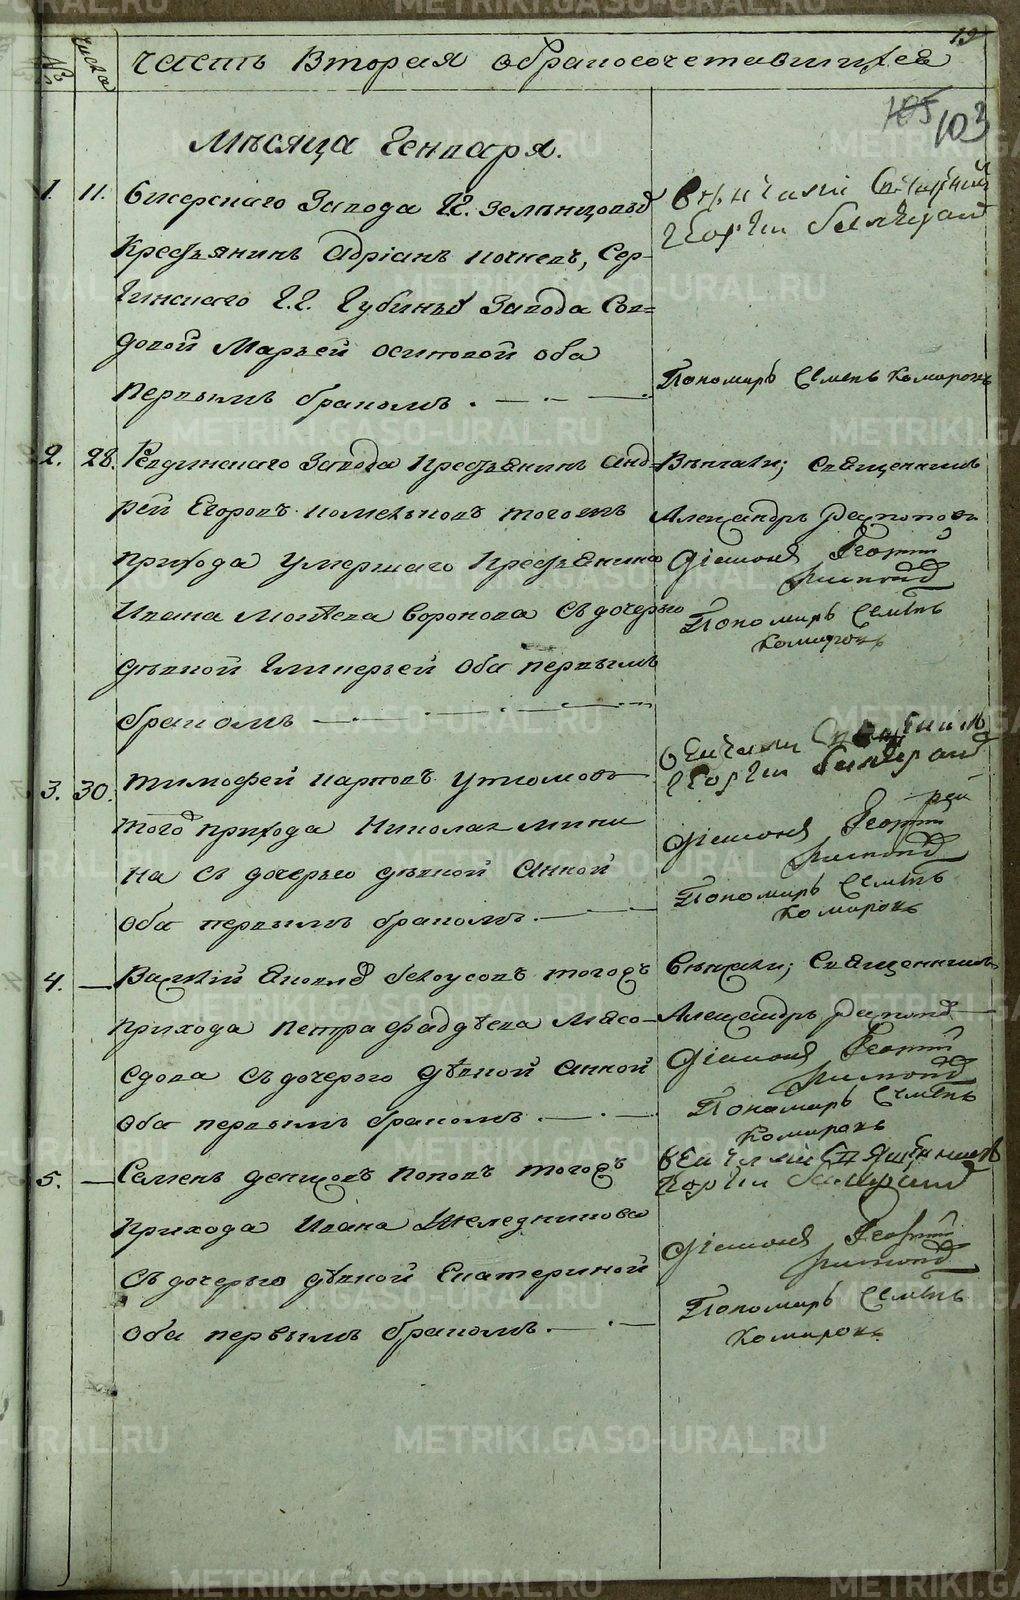 19
№
числа
часть Вторая обракосочетавшихся
105 103
Мѣсяца Генваря.
1. 11. Бисерскаго Завода Г. Зеленцовъ
Крестьянинъ Адріанъ Сер-
гинскаго Г.Г. Губиныхъ Завода Съв=
довой Марьей Осиповой оба
первымъ бракомъ.
Вѣнчали Священникъ
Георгій
Пономарь Семенъ Комаровъ
2. 28. Ревдинскаго Завода Крестьянинъ Анд-
рей Егоровъ тогожъ
прихода умершаго Крестьянина
Ивана Воронова съ дочерью
дѣвкой Гликерьей Оба первымъ
бракомъ
Вѣнчали; Священникъ
Александръ
Діаконъ Георгій
Пономарь Семенъ
Комаровъ
3. 30. Тимофей Карповъ Утюмовъ
того прихода Николая Мини
на съ дочерью дѣвкой Анной
Оба первымъ бракомъ.
Венчали Священникъ
Георгій
Діаконъ Георгій
Пономарь Семенъ
Комаровъ
4. — Василій Яковлевъ Белоусовъ тогожъ
прихода Петра Фаддѣева Мясо-
едова съ дочерью дѣвкой Анной
Оба первымъ бракомъ.
Вѣнчали; Священникъ
Александръ
Діаконъ Георгій
Пономарь Семенъ
Комаровъ
5. — Семенъ Денисовъ Поповъ тогожъ
прихода Ивана Шкледникова
съ дочерью дѣвкой Екатериной
Оба первымъ бракомъ.
Венчали Священникъ
Георгій
Діаконъ Георгій
Пономарь Семенъ
Комаровъ
METRIKI.GASO-URAL.RU